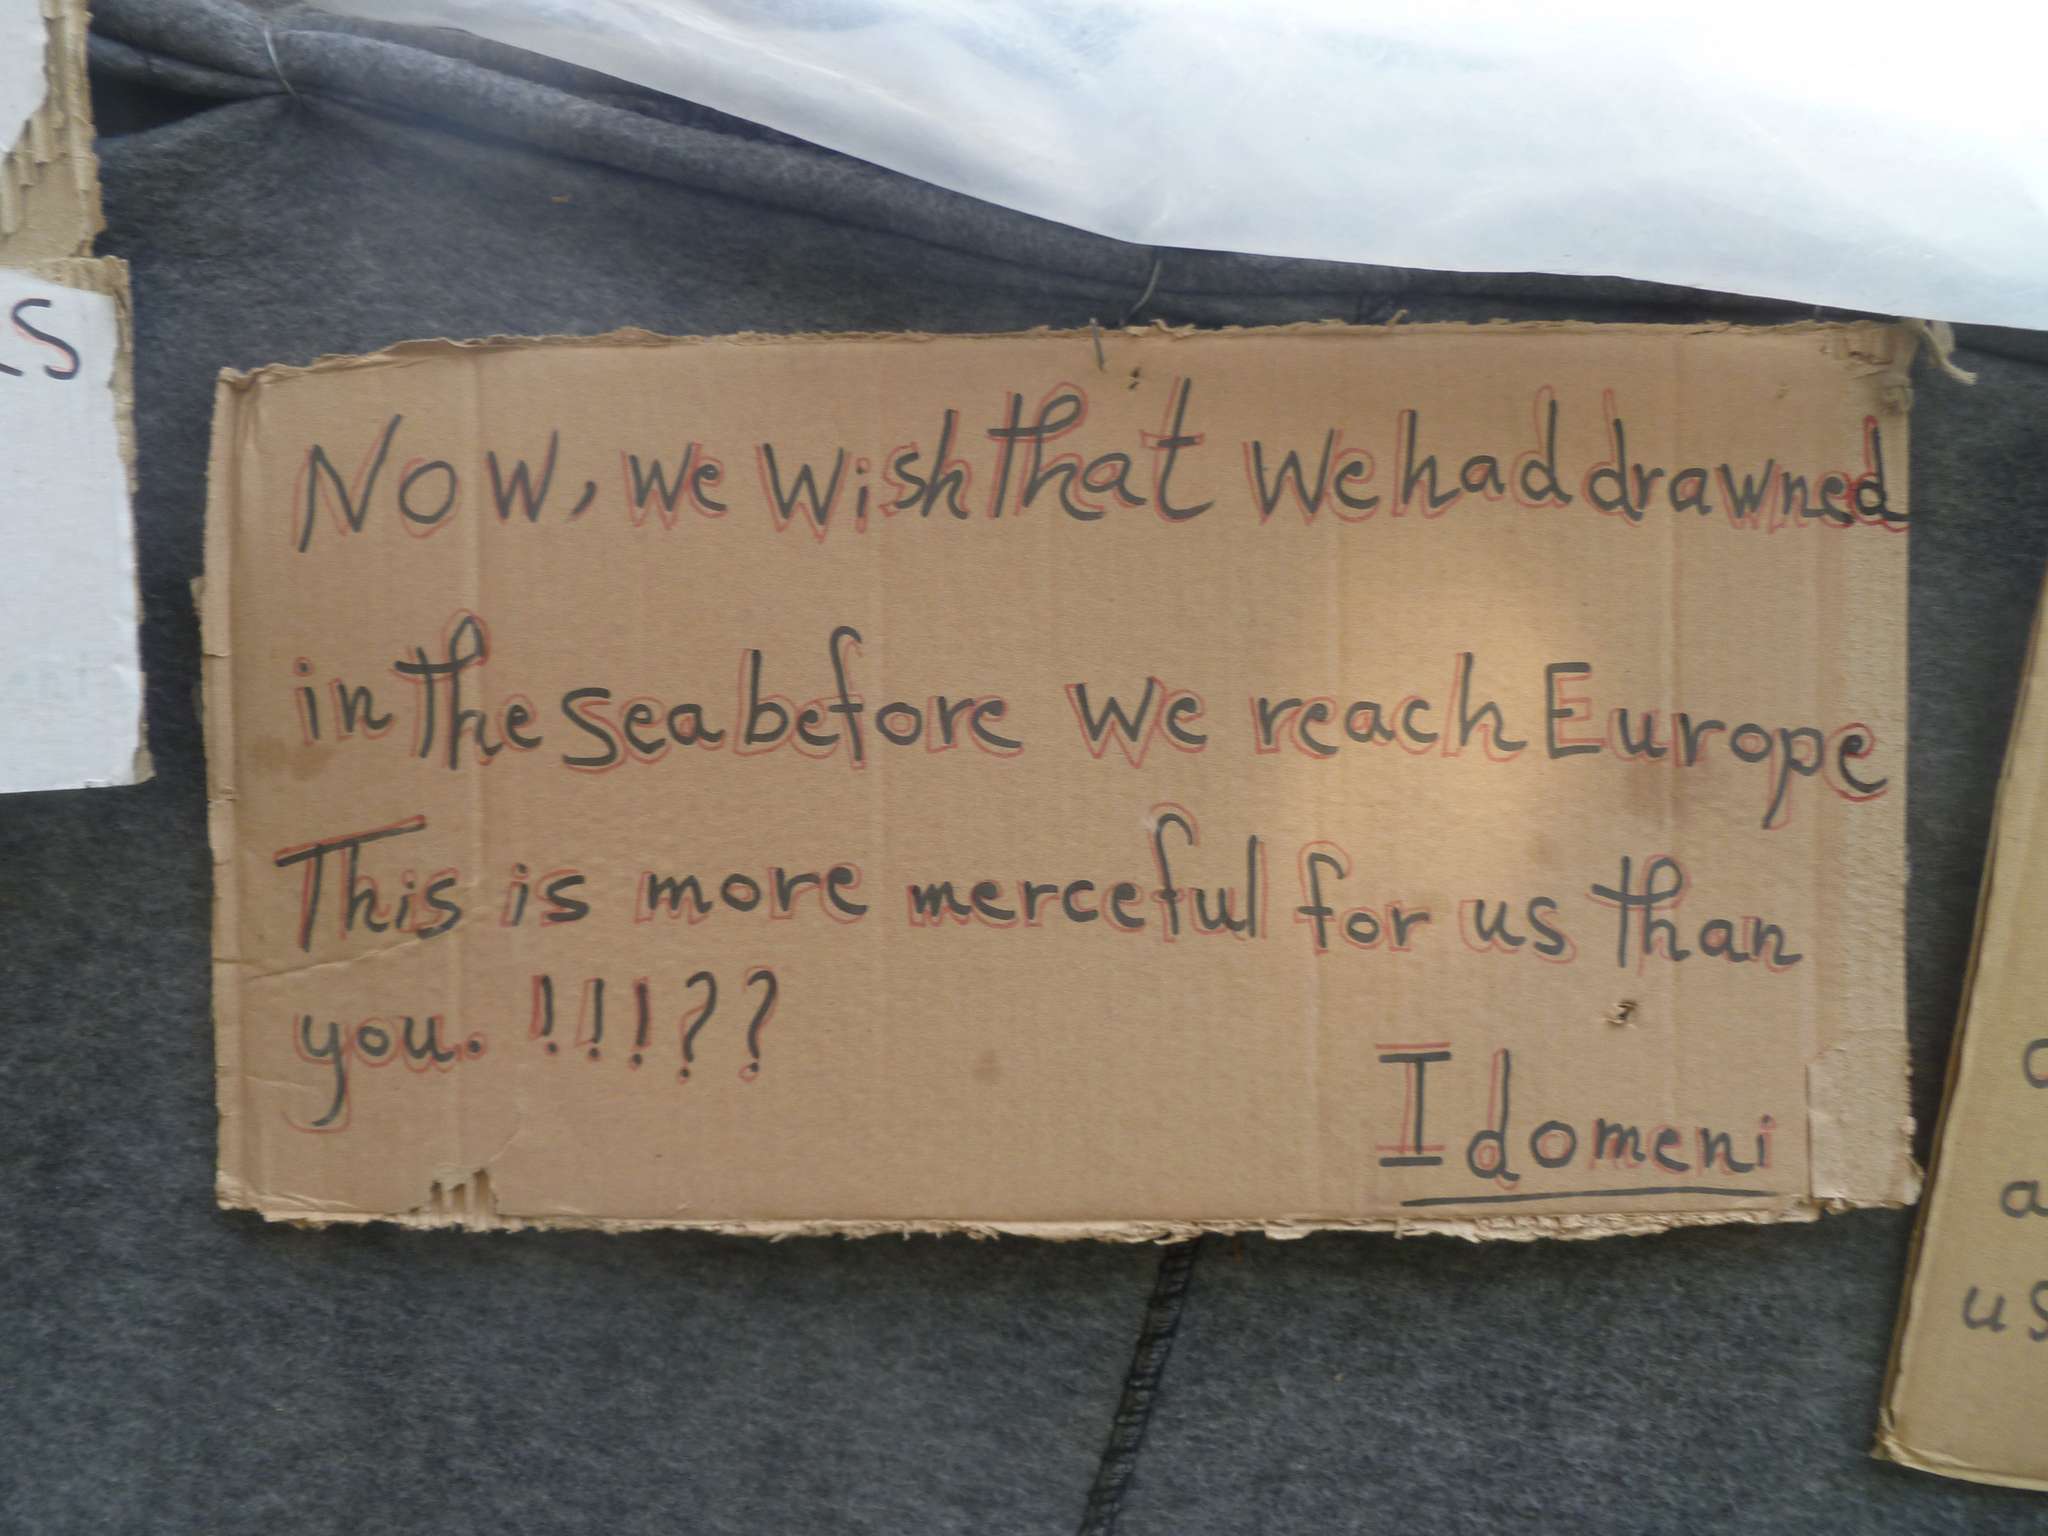 Now, we wish that we had drawned
in the sea before we reach Europe
This is more merceful for us than
you. !!!??
Idomeni
s
a
us